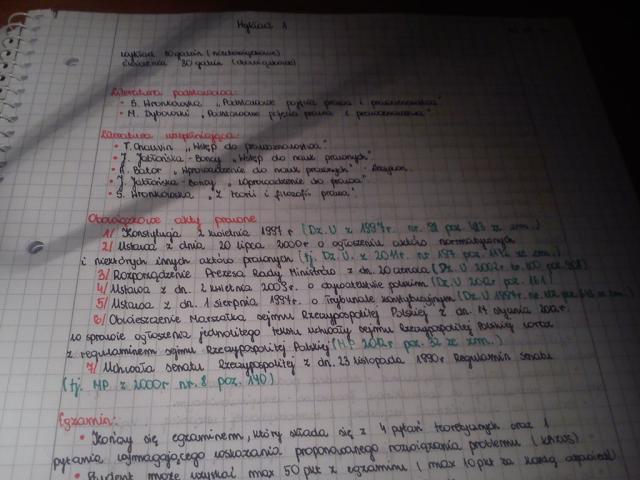 Wykład 1
wykład 30 godzin (nieobowiązkowe)
ćwiczenia 30 godzin (obowiązkowe)
Literatura podstawowa:
• S. Wronkowska „Podstawowe pojęcia prawa i prawoznawstwa"
• M. Dybowski „Podstawowe pojęcia prawa i prawoznawstwa"
Literatura uzupełniająca:
• T. Chauvin „Wstęp do prawoznawstwa"
• J. Jabłońska-Bonca „Wstęp do nauk prawnych"
• A. Bator „Wprowadzenie do nauk prawnych"
• J. Jabłońska-Bonca „Wprowadzenie do prawa"
• S. Wronkowska „Z teorii i filozofii prawa"
Obowiązkowe akty prawne
1/ Konstytucja 2 kwietnia 1997 r (Dz. U z 1997 r. nr. 78 poz 483 ze zm.)
2/ Ustawa z dnia 20 lipca 2000 r o ogłoszeniu aktów normatywnych
i niektórych innych aktów prawnych (tj. Dz. U. z 2011 r. nr 197 poz. 1172 ze zm.)
3/ Rozporządzenie Prezesa Rady Ministrów z dn. 20 czerwca (Dz. U. 2002 r. nr. 100 poz 908)
4/ Ustawa z dn. 2 kwietnia 2009 r. o obywatelstwie polskim (Dz. U 2012 r poz 161)
5/ Ustawa z dn. 1 sierpnia 1997 r. o Trybunale Konstytucyjnym (Dz. U 1997 r. nr. 102 poz 643 ze zm.)
6/ Obwieszczenie Marszałka Sejmu Rzeczypospolitej Polskiej z dn. 14 stycznia 2012 r.
w sprawie ogłoszenia jednolitego tekstu uchwały sejmu Rzeczypospolitej Polskiej wraz
z regulaminem sejmu Rzeczypospolitej Polskiej (MP 2012 r poz. 32 ze zm.)
7/ Uchwała senatu Rzeczypospolitej z dn. 23 listopada 1990 r Regulamin senatu
(tj. MP z 2000 r nr. 8 poz. 170)
Egzamin:
• Kończy się egzaminem, który składa się z 4 pytań teoretycznych oraz 1
pytania wymagającego wskazania proponowanego rozwiązania problemu (kazus)
• Student może uzyskać max 50 pkt z egzaminu (max 10 pkt za każdą odpowiedź)